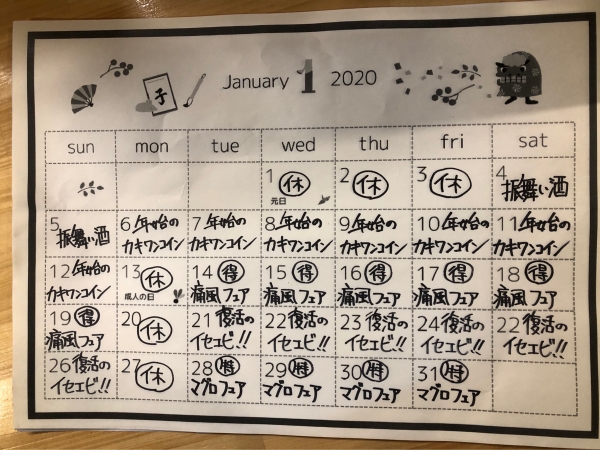 子
January 1 2020
sun mon tue wed thu fri sat
1 休 元日
2 休
3 休
4 振舞い酒
5 振舞い酒
6 年始のカキワンコイン
7 年始のカキワンコイン
8 年始のカキワンコイン
9 年始のカキワンコイン
10 年始のカキワンコイン
11 年始のカキワンコイン
12 年始のカキワンコイン
13 休 成人の日
14 得 痛風フェア
15 得 痛風フェア
16 得 痛風フェア
17 得 痛風フェア
18 得 痛風フェア
19 得 痛風フェア
20 休
21 復活のイセエビ!!
22 復活のイセエビ!!
23 復活のイセエビ!!
24 復活のイセエビ!!
22 復活のイセエビ!!
26 復活のイセエビ!!
27 休
28 マグロフェア
29 マグロフェア
30 マグロフェア
31 マグロフェア